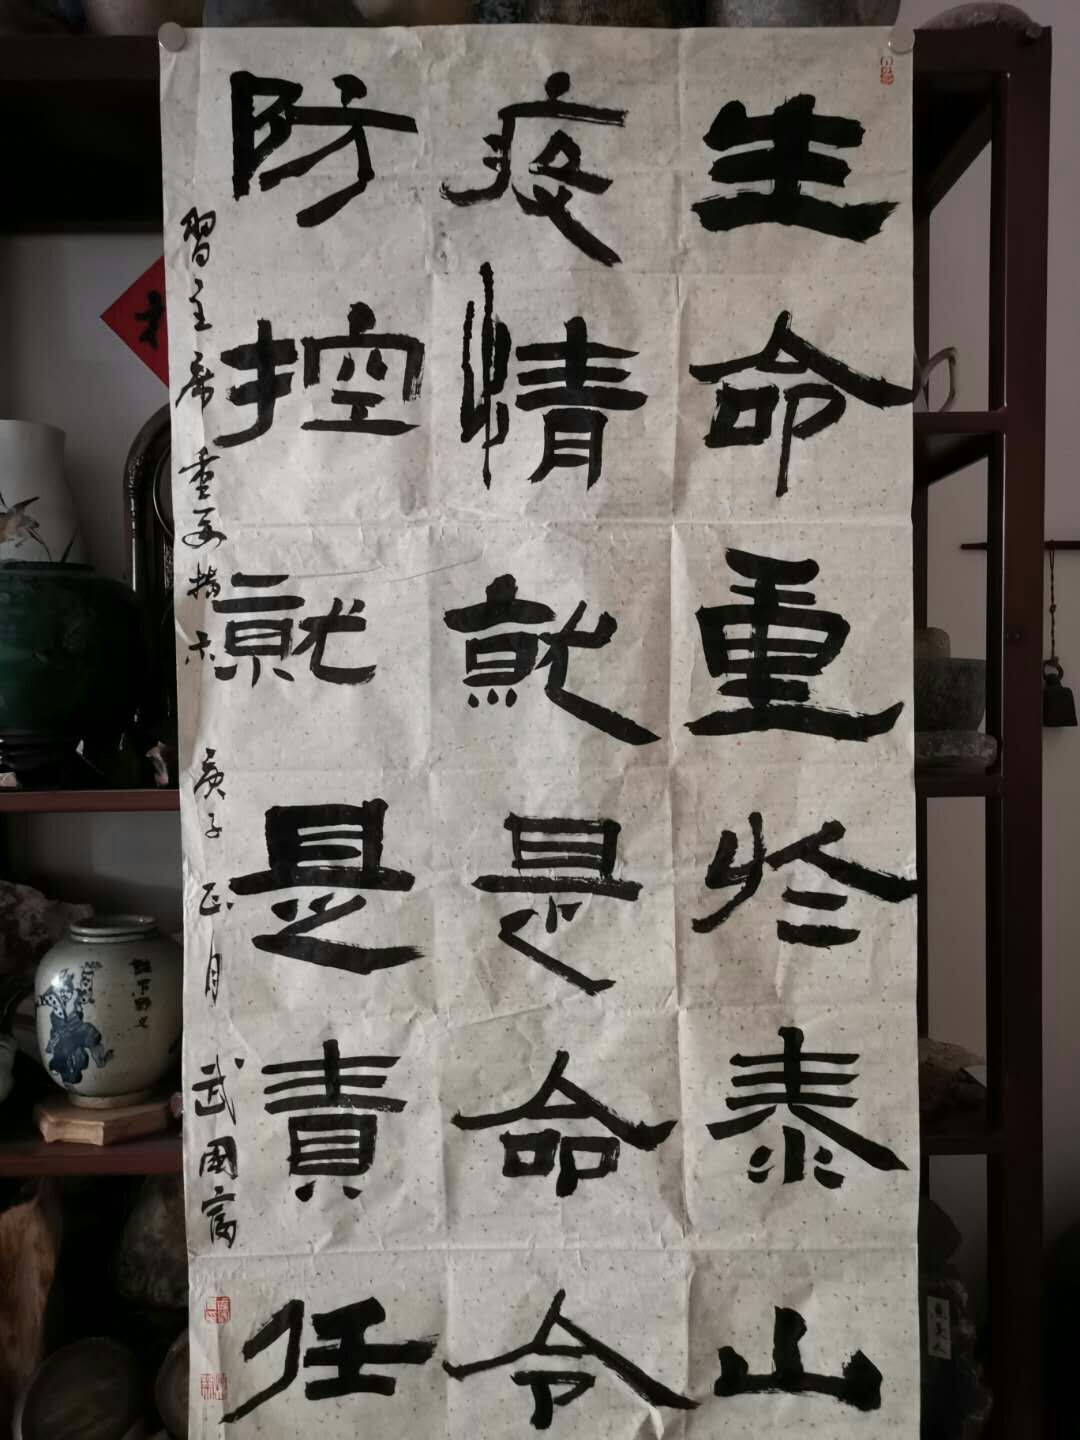 生命重於泰山
疫情就是命令
防控就是責任
習主席重要指示 庚子正月 武國富